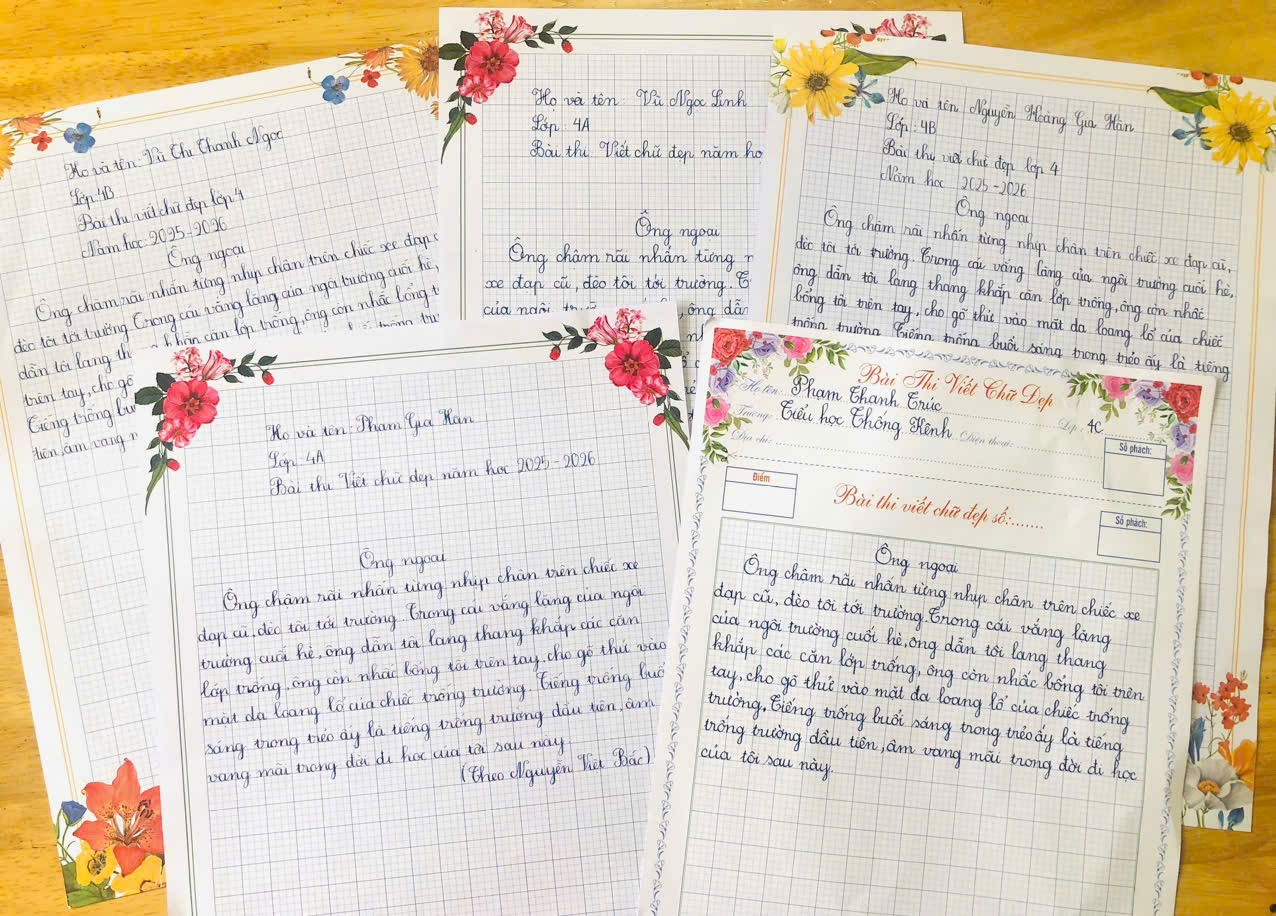 Họ và tên: Vũ Thị Thanh Ngọc
Lớp 4B
Bài thi viết chữ đẹp lớp 4
Năm học: 2025-2026
Ông ngoại
Ông chậm rãi nhấn từng nhịp chân trên chiếc xe đạp
đèo tôi tới trường. Trong cái vắng lặng của ngôi trường cuối hè,
dẫn tôi lang khắp căn lớp trống, ông còn nhấc bổng
trên tay, cho gõ
Tiếng trống
tiên, âm vang
Họ và tên: Vũ Ngọc Linh
Lớp: 4A
Bài thi: Viết chữ đẹp năm
Ông ngoại
Ông chậm rãi nhấn từng
xe đạp cũ, đèo tôi tới trường.
của ngôi ông dẫn
Họ và tên: Nguyễn Hoàng Gia Hân
Lớp: 4B
Bài thi viết chữ đẹp lớp 4
Năm học 2025-2026
Ông ngoại
Ông chậm rãi nhấn từng nhịp chân trên chiếc xe đạp cũ,
đèo tôi tới trường. Trong cái vắng lặng của ngôi trường cuối hè,
ông dẫn tôi lang thang khắp căn lớp trống, ông còn nhấc
bổng tôi trên tay, cho gõ thử vào mặt da loang lổ của chiếc
trống trường. Tiếng trống buổi sáng trong trẻo ấy là tiếng
Họ và tên: Phạm Gia Hân
Lớp: 4A
Bài thi: Viết chữ đẹp năm học 2025-2026
Ông ngoại
Ông chậm rãi nhấn từng nhịp chân trên chiếc xe
đạp cũ, đèo tôi tới trường. Trong cái vắng lặng của ngôi
trường cuối hè, ông dẫn tôi lang thang khắp các căn
lớp trống, ông còn nhấc bổng tôi trên tay, cho gõ thử vào
mặt da loang lổ của chiếc trống trường. Tiếng trống buổi
sáng trong trẻo ấy là tiếng trống trường đầu tiên, âm
vang mãi trong đời đi học của tôi sau này.
(Theo Nguyễn Việt Bắc)
Bài Thi Viết Chữ Đẹp
Họ tên: Phạm Thanh Trúc Lớp: 4C
Trường: Tiểu học Thống Kênh Điện thoại:
Địa chỉ:
Số phách:
Điểm
Bài thi viết chữ đẹp số:.......
Số phách:
Ông ngoại
Ông chậm rãi nhấn từng nhịp chân trên chiếc xe
đạp cũ, đèo tôi tới trường. Trong cái vắng lặng
của ngôi trường cuối hè, ông dẫn tôi lang thang
khắp các căn lớp trống, ông còn nhấc bổng tôi trên
tay, cho gõ thử vào mặt da loang lổ của chiếc trống
trường. Tiếng trống buổi sáng trong trẻo ấy là tiếng
trống trường đầu tiên, âm vang mãi trong đời đi học
của tôi sau này.